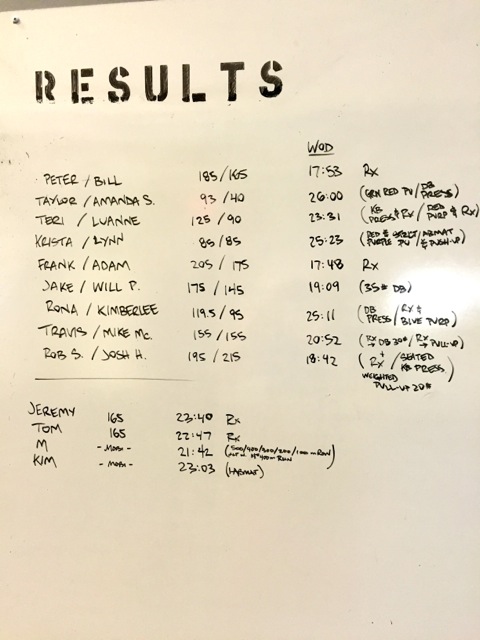 RESULTS
WOD
PETER / BILL 185/165 17:53 Rx
TAYLOR / AMANDA S. 93 / 40 26:00 (GRN RED PU / DB PRESS)
TERI / LUANNE 125 / 90 23:31 (KB PRESS & Rx / RED PURP & Rx)
KRISTA / LYNN 85/85 25:23 (RED & STRICT / ABMAT PURPLE PU / & PUSH-UP)
FRANK / ADAM 205 / 175 17:48 Rx
JAKE / WILL P. 175 / 145 19:09 (35# DB)
RONA / KIMBERLEE 119.5 / 95 25:11 (DB PRESS / Rx & BLUE PURP)
TRAVIS / MIKE Mc. 155 / 155 20:52 (Rx → DB 30# / Rx → PULL-UP)
ROB S. / JOSH H. 195 / 215 18:42 (Rx + WEIGHTED PULL-UP 20# / SEATED KB PRESS)
JEREMY 165 23:40 Rx
TOM 165 22:47 Rx
M - MOBI - 21:42 (500/400/300/200/100 m ROW
KIM - MOBI - 23:03 (ABMAT)